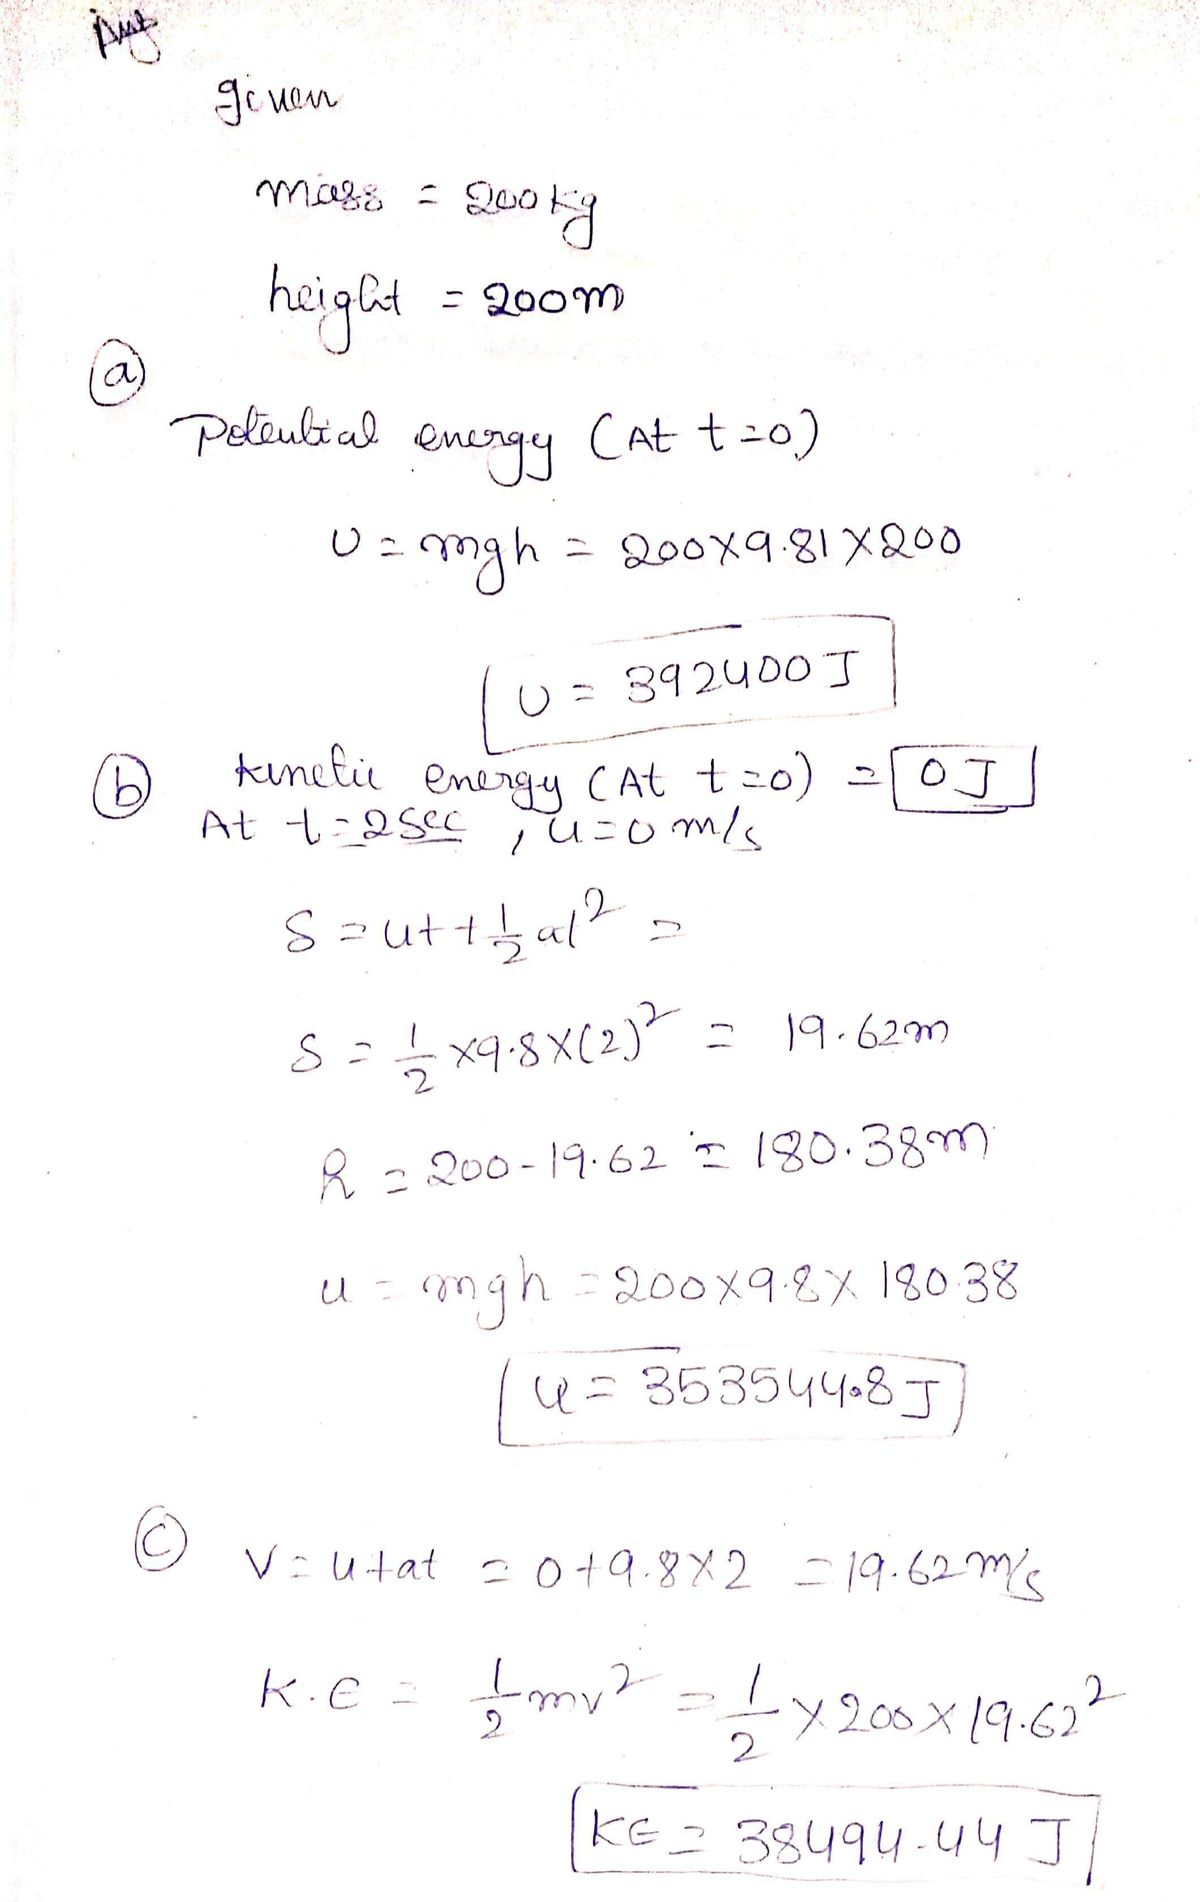 Ans
given
mass = 200kg
height = 200m
(a)
Potential energy (At t=0)
U = mgh = 200×9.81×200
U = 392400 J
(b) kinetic energy (At t=0) = 0 J
At t=2sec, u=0 m/s
S = ut + 1/2 at² =
S = 1/2 ×9.8×(2)² = 19.62m
h = 200-19.62 = 180.38m
u = mgh = 200×9.8×180.38
u = 353544.8 J
(c) V = u+at = 0+9.8×2 = 19.62 m/s
K.E = 1/2 mv² = 1/2 × 200 × 19.62²
KE = 38494.44 J